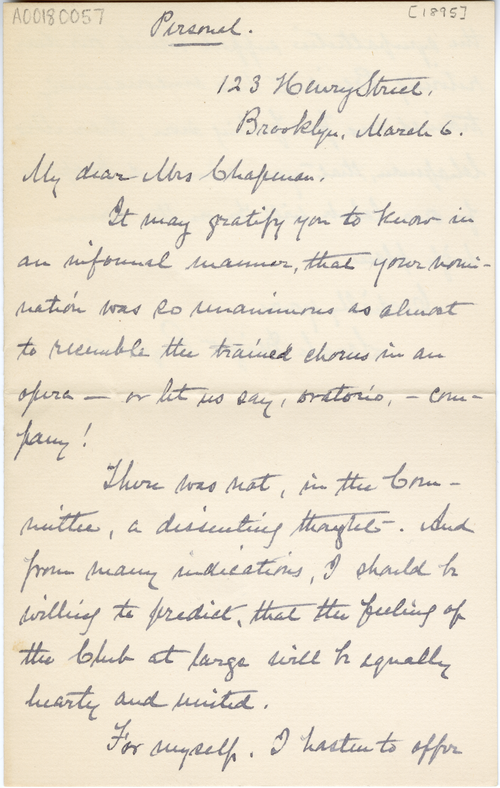 A0018C057
[1895]
Personal.
123 Henry Street,
Brooklyn, March 6.
My dear Mrs Chapman.
It may gratify you to know in
an informal manner, that your nomi-
nation was so unanimous as almost
to resemble the trained chorus in an
opera — or let us say, oratorio, – com-
pany!
There was not, in the Com-
mittee, a dissenting thought. And
from many indications, I should be
willing to predict, that the feeling of
the Club at large will be equally
hearty and united.
For myself. I hasten to offer